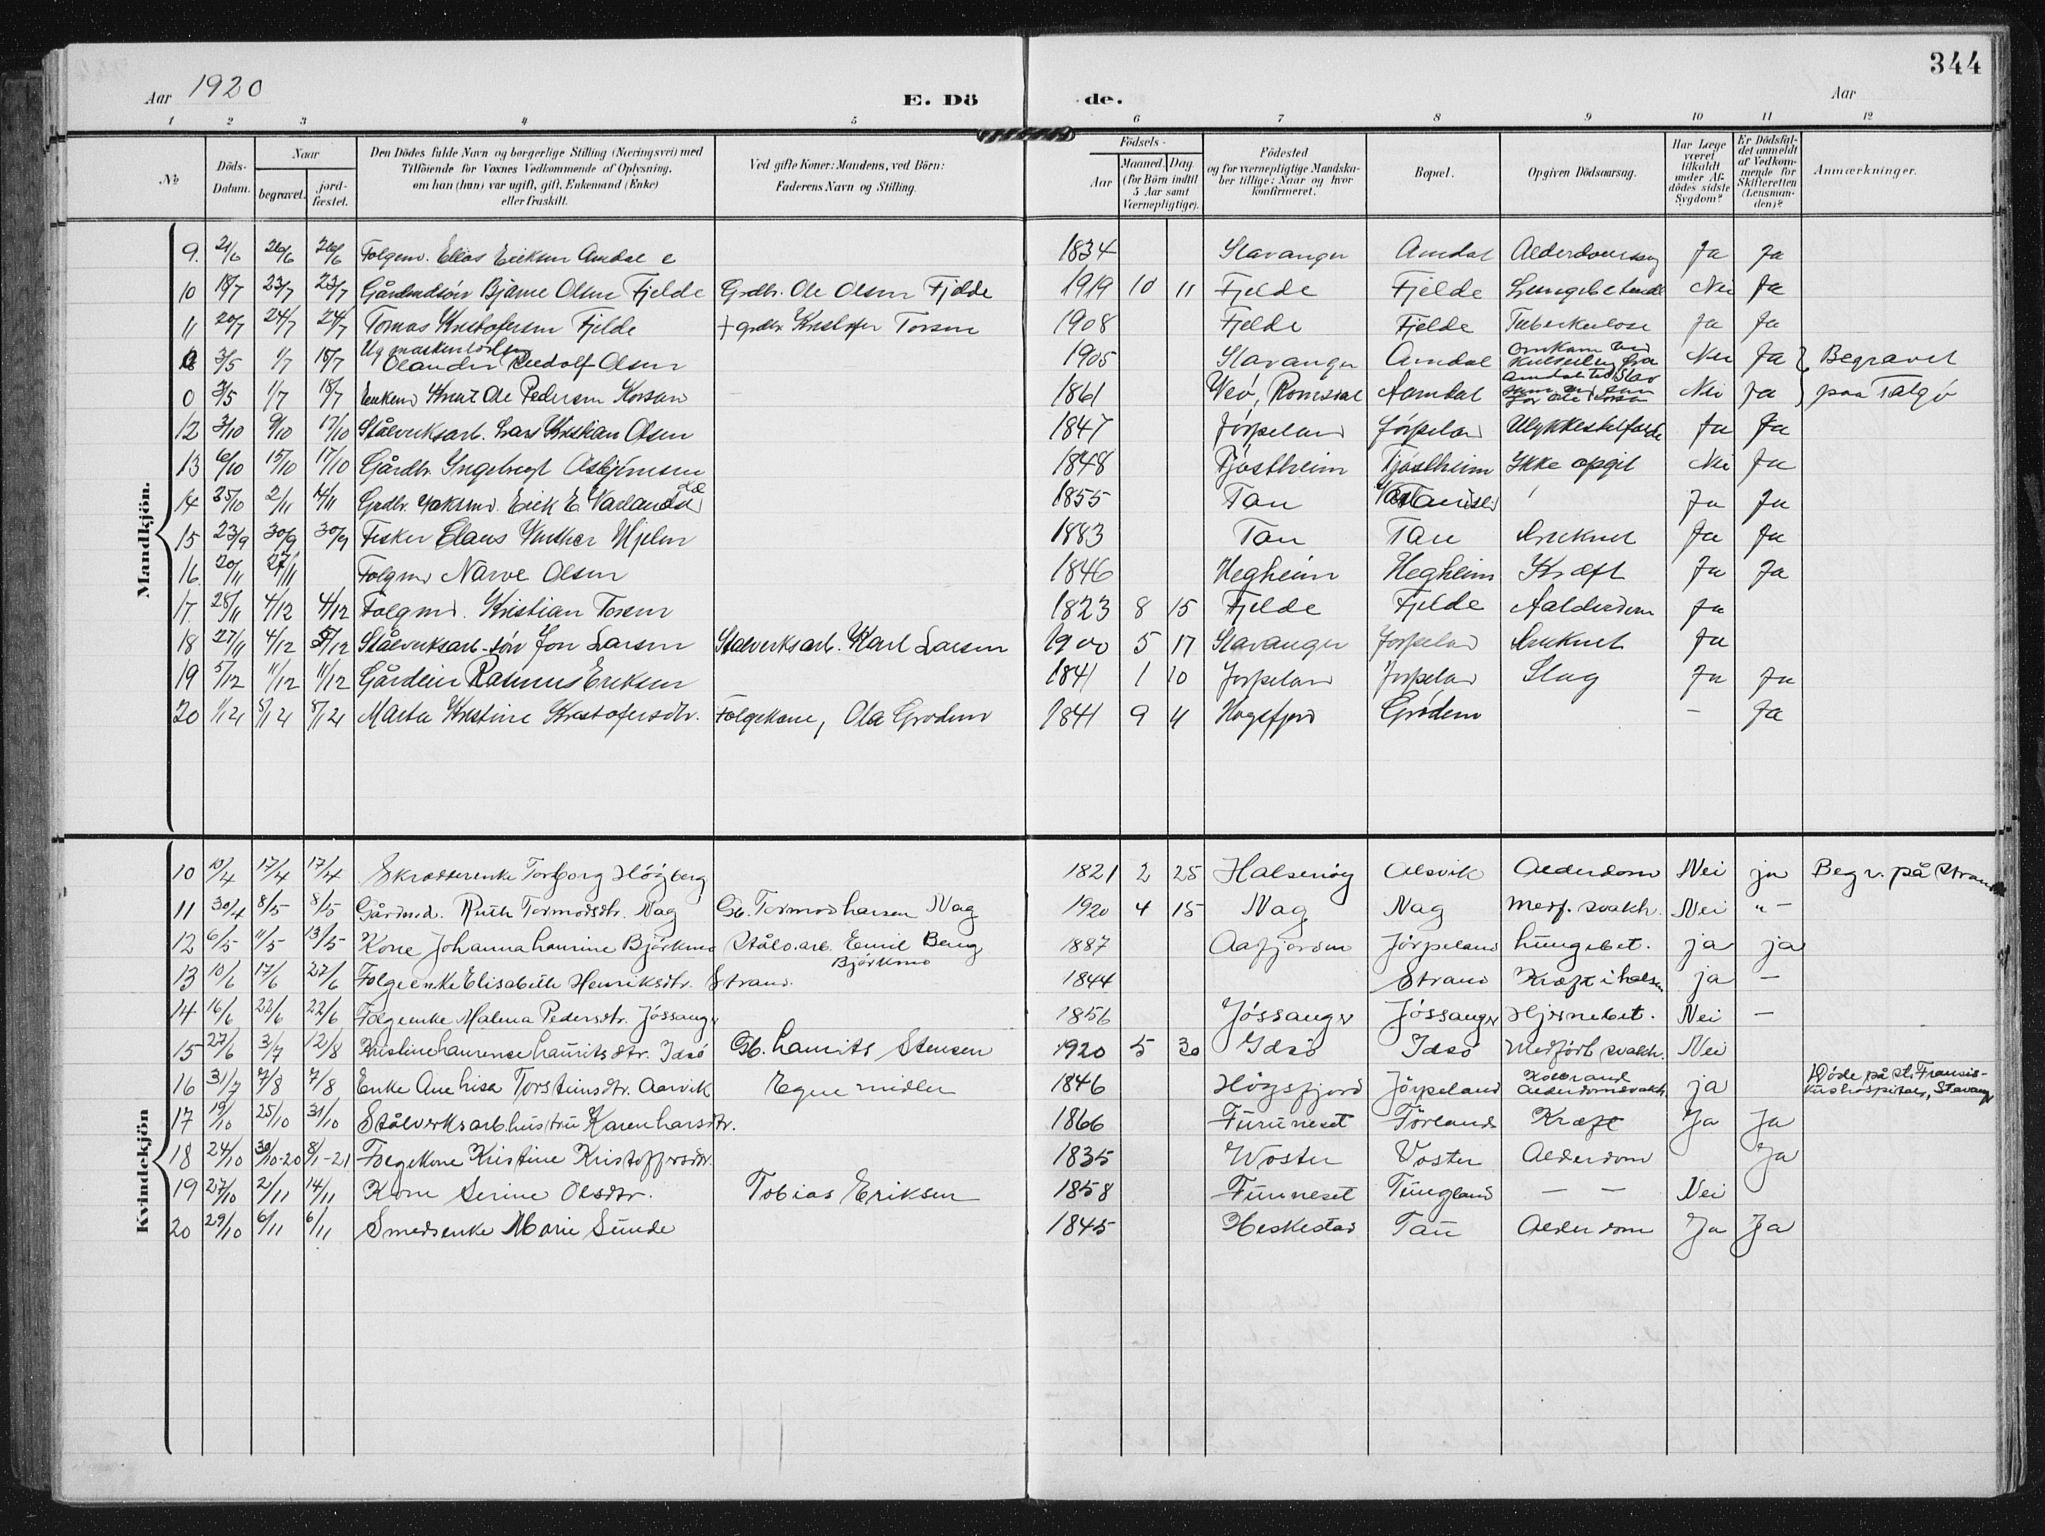 344
Aar 1920 E. Dö de. Aar
1 2 3 4 5 6 7 8 9 10 11 12
No. Döds-Datum. Naar begravet. jord-fæstet. Den Dödes fulde Navn og borgerlige Stilling (Næringsvei) med Tilföiende for Voxnes Vedkommende af Oplysning, om han (hun) var ugift, gift, Enkemand (Enke) eller fraskilt. Ved gifte Koner: Mandens, ved Börn: Faderens Navn og Stilling. Födsels- Aar Maaned. Dag. (for Börn indtil 5 Aar samt Værnepligtige). Födested og for værnepligtige Mandska-ber tillige: Naar og hvor konfirmeret. Bopæl. Opgiven Dödsaarsag. Har Læge været tilkaldt under Af-dödes sidste Sygdom? Er Dödsfal-det anmeldt af Vedkom-mende for Skifteretten (Lensman-den)? Anmærkninger.
Mandkjön.
9. 21/6 26/6 26/6 Folgem. Elias Eriksen Amdal 1834 Stavanger Amdal Ja Ja
10 18/7 23/7 23/7 Bjarne Olsen Fjelde Grdbr. Ole Olsen Fjelde 1919 10 11 Fjelde Fjelde Nei Ja
11 20/7 24/7 24/7 Tomas Kristofersen Fjelde + grdbr Kristofer Torsen 1908 Fjelde Fjelde Tuberkulose Ja Ja
3/5 1/7 18/7 Olander Rudolf Olsen 1905 Stavanger Amdal Nei Ja Begravet
0 3/5 1/7 18/7 Enkem Knut Ole Pedersen Korsan 1861 Veø, Romsdal Aamdal Nei Ja paa Talgø
12 3/10 9/10 17/10 Stålverksarb. Lars Kristian Olsen 1847 Jörpeland Jörpeland Ulykkestilfælde Ja Ja
13 6/10 15/10 17/10 Gårdbr. Ingebregt Asbjörnsen 1848 Tjöstheim Tjöstheim Ikke opgit Nei Ja
14 25/10 2/11 14/11 Grdbr. Erik E. 1855 Tau Ja Ja
15 23/9 30/9 30/9 Fisker Claus Hjelm 1883 Tau Tau Druknet Ja Ja
16 20/11 27/11 Folgem Narve Olsen 1846 Hegheim Hegheim Kræft Ja Ja
17. 28/11 4/12 4/12 Folgmd. Kristian Torsen 1823 8 15 Fjelde Fjelde Aalderdom Ja
18 27/11 4/12 5/12 Stålverksarb. sön Jon Larsen Stalverksarb. Karl Larsen 1900 5 17 Stavanger Jorpeland Druknet Ja
19 5/12 11/12 11/12 Rasmus Eriksen 1841 1 10 Jorpeland Jorpeland Slag Ja Ja
20 1/12 5/12 Marta Kristine Kristofersdtr. Folgekone, Ola Grodem 1841 9 Hogsfjord Grödem — Ja
Kvindekjön
10 10/4 17/4 17/4 Skrædderenke Torborg Högberg 1821 2 25 Halsenöy Alsvik Alderdom Nei ja Begr. på Strand
11 30/4 8/5 8/5 Gårdmd. Ruth Tormodsdtr. Nag Gb. Tormod Larsen Nag 1920 4 15 Nag Nag Medf. svakh. Nei "-
12 6/5 11/5 13/5 Kone Johanna Laurine Björkmo Stålv.arb. Emil Beng Björkmo 1887 Aafjorden Jörpeland Lungebet. ja ja
13 10/6 17/6 27/6 Folgeenke Elisabeth Henriksdtr. Strand. 1844 Strand Kræft i halsen ja —
14 16/6 22/6 22/6 Folgeenke Malena Pedersdtr. Jössanger 1856 Jössanger Jössanger Hjernebet. Nei —
15 27/6 3/7 12/8 Kristine Laurense Lauritsdtr. Idsö Gb. Laurits Stensen 1920 5 30 Idsö Idsö Medfört svakh. Nei
16 31/7 7/8 7/8 Enke Ane Lisa Torsteinsdtr. Aarvik Egne midler 1846 Högsfjord Jörpeland Koldbrand Alderdomsvakh. ja Döde på St. Fransis-kushospitalet, Stavanger
17 19/10 25/10 31/10 Stålverksarb.hustru Karen Larsdtr. 1866 Furuneset Törland Kræft Ja Ja
18 24/10 30/10-20 8/1-21 Folgekone Kristine Kristoffersdtr. 1835 Woster Voster Alderdom Ja
19 27/10 2/11 14/11 Kone Serine Olsdtr. Tobias Eriksen 1858 Funneset Tungland — — Nei
20 29/10 6/11 6/11 Smedsenke Marie Sunde 1845 Heskestad Tau Alderdom Ja Ja